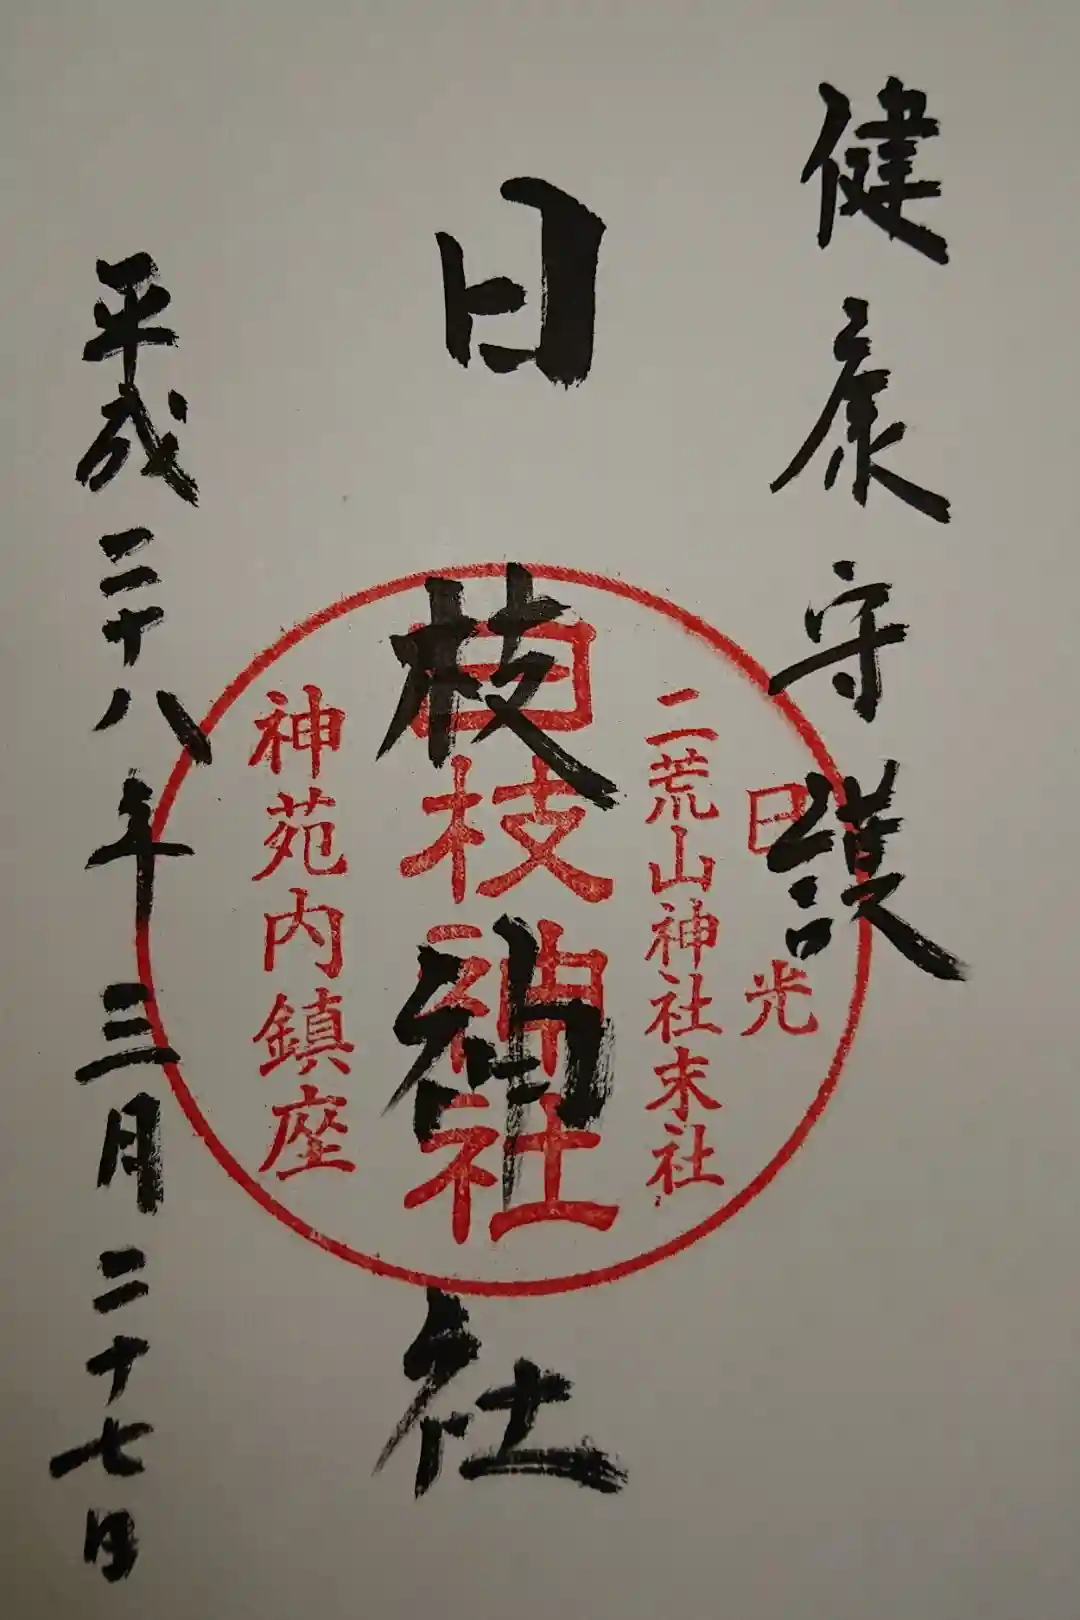 健康守護
日光
二荒山神社末社
日枝神社
日枝神社
神苑内鎮座
平成二十八年三月二十七日